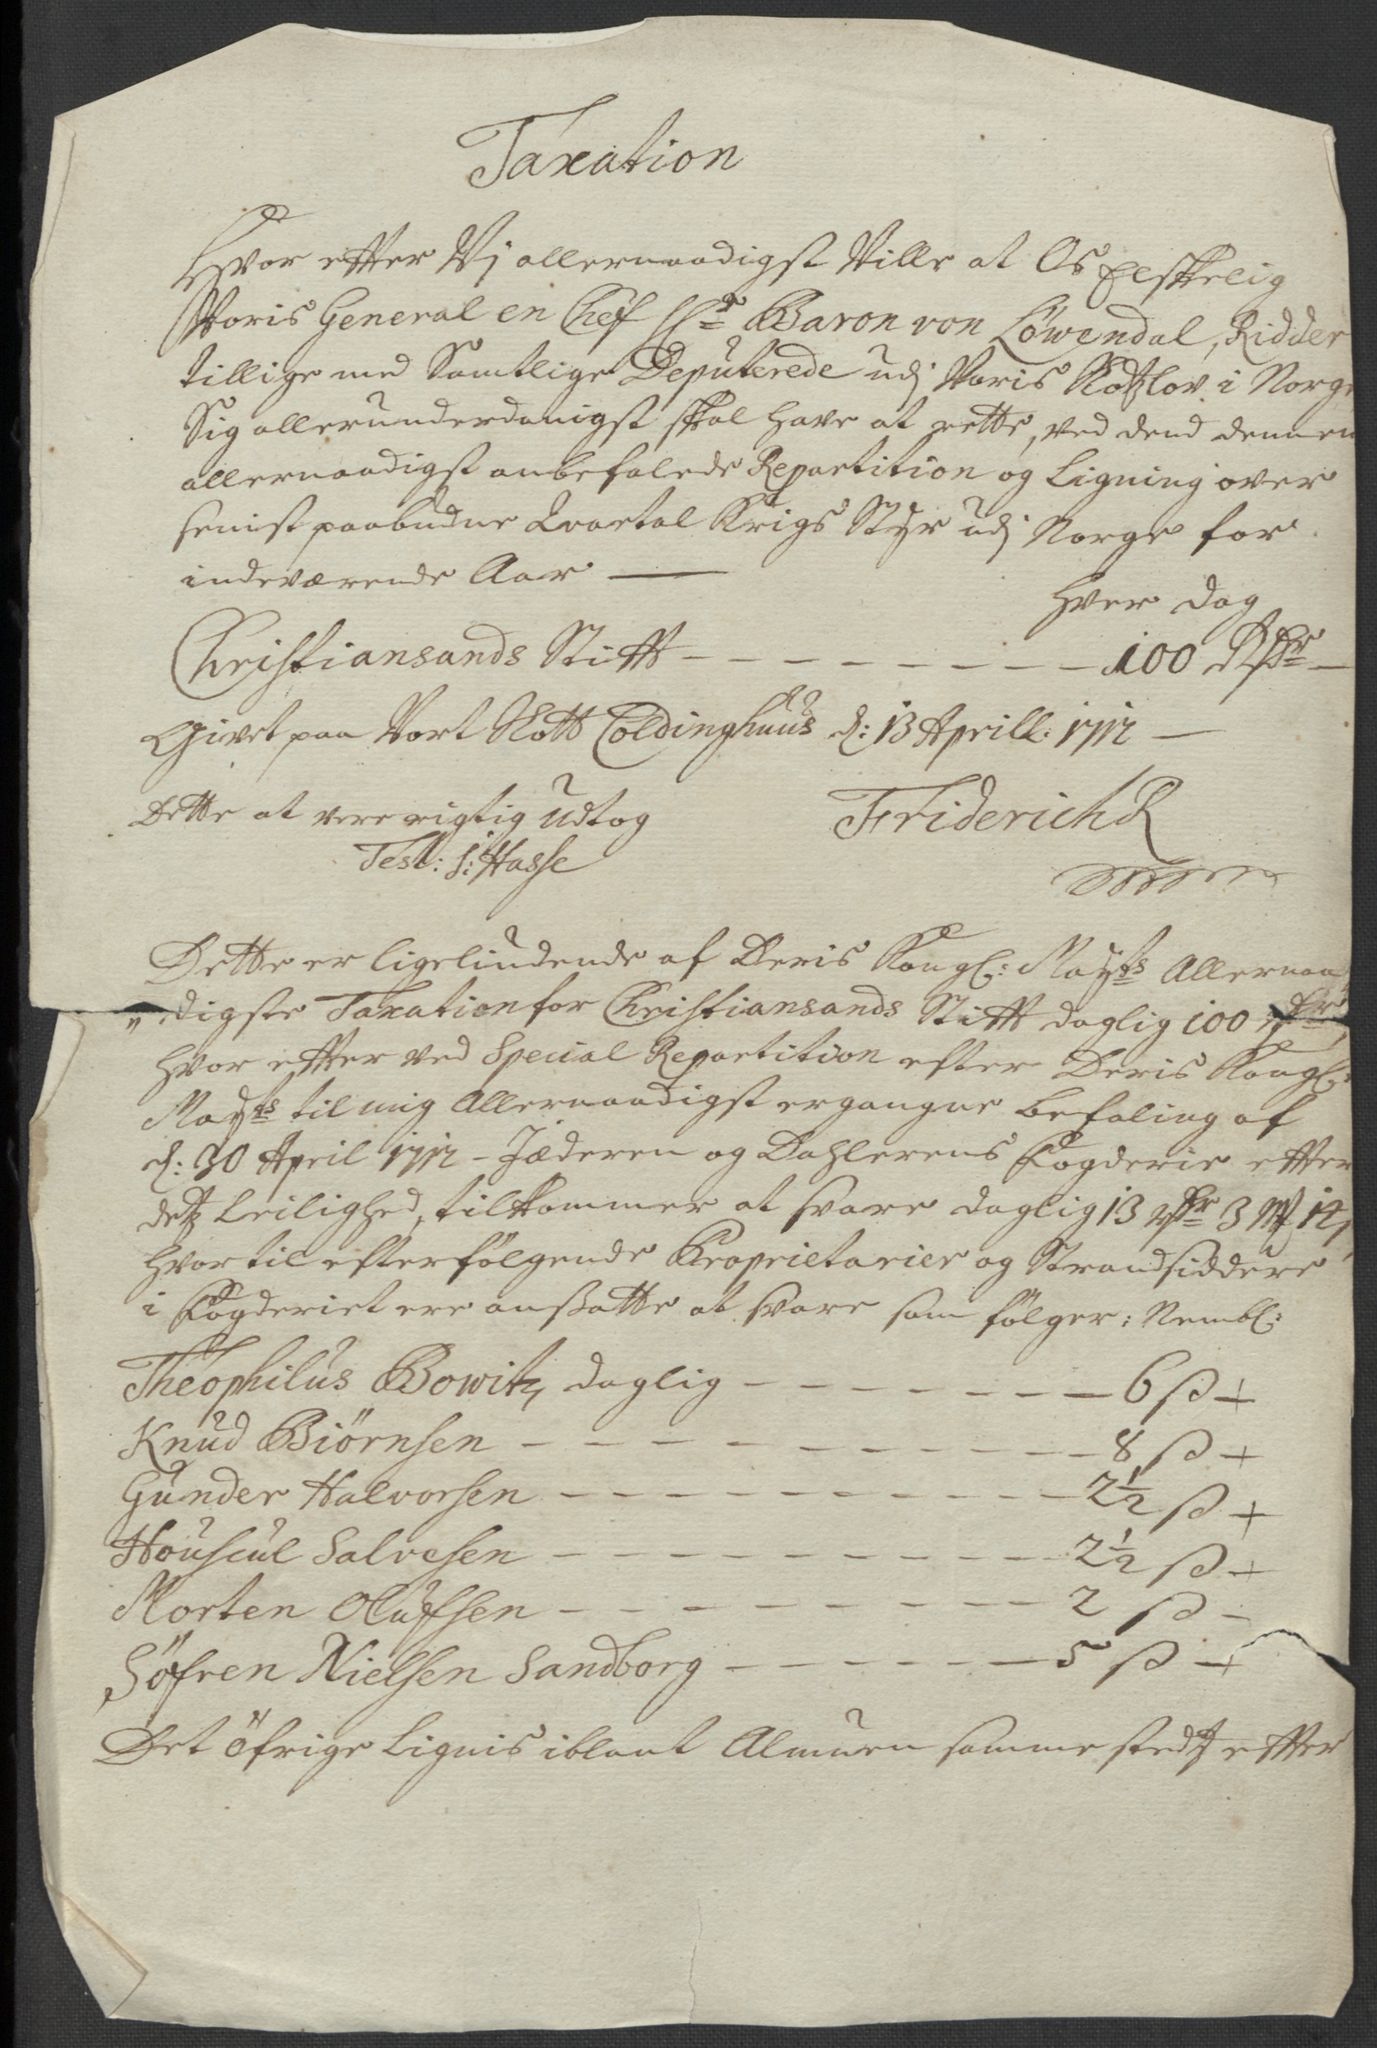 Taxation
Hvor efter Vj allernaadigst Ville at Os Elskelig
Voris General en Chef Hr Baron von Löwendal, Ridder
tillige med Samtlige Deputerede udj Voris Slotzlov i Norge
Sig allerunderdanigst skal have at rette, ved dend dennem
allernaadigst anbefalede Repartition og Ligning over
senist paabudne Qvartal Krigs Styr udj Norge for
indeværende Aar —
hver dag
Christiansands Stift - - - - - - - - - 100 Rdr —
Givet paa Vort Slott Coldinghuus d: 13 Aprill. 1712 —
Dette at vere rigtig Udtog
Friderich R
Test: S: Hasse
Dette er ligelindende af Deris Kongl: Mayts Allernaa
„digste Taxation for Christiansands Stift daglig 100 rdr,
hvor efter ved Special Repartition efter Deris Kongl:
Mayts til mig Allernaadigst ergangne befaling af
d: 30 April 1712 - Jæderen og Dahlerens Fogderie efter
detz Leilighed, tilkommer at svare daglig 13 rdr 3 mk 12,
hvor til efterfølgende Proprietarier og Strandsiddere
i Fogderiet ere ansatte at svare som følger: Nembl:
Theophilus Bowitz, daglig - - - - - - - 6 ß +
Knud Biörnsen - - - - - - - - - - 8 ß +
Gunder Halvorsen - - - - - - - - - 2½ ß +
Houscul Salvesen - - - - - - - - - 2½ ß +
Morten Oluffsen - - - - - - - - - 2 ß -
Söfren Nielsen Sandborg - - - - - - 5 ß +
Det öfrige Lignis iblant Almuen samme stedz efter